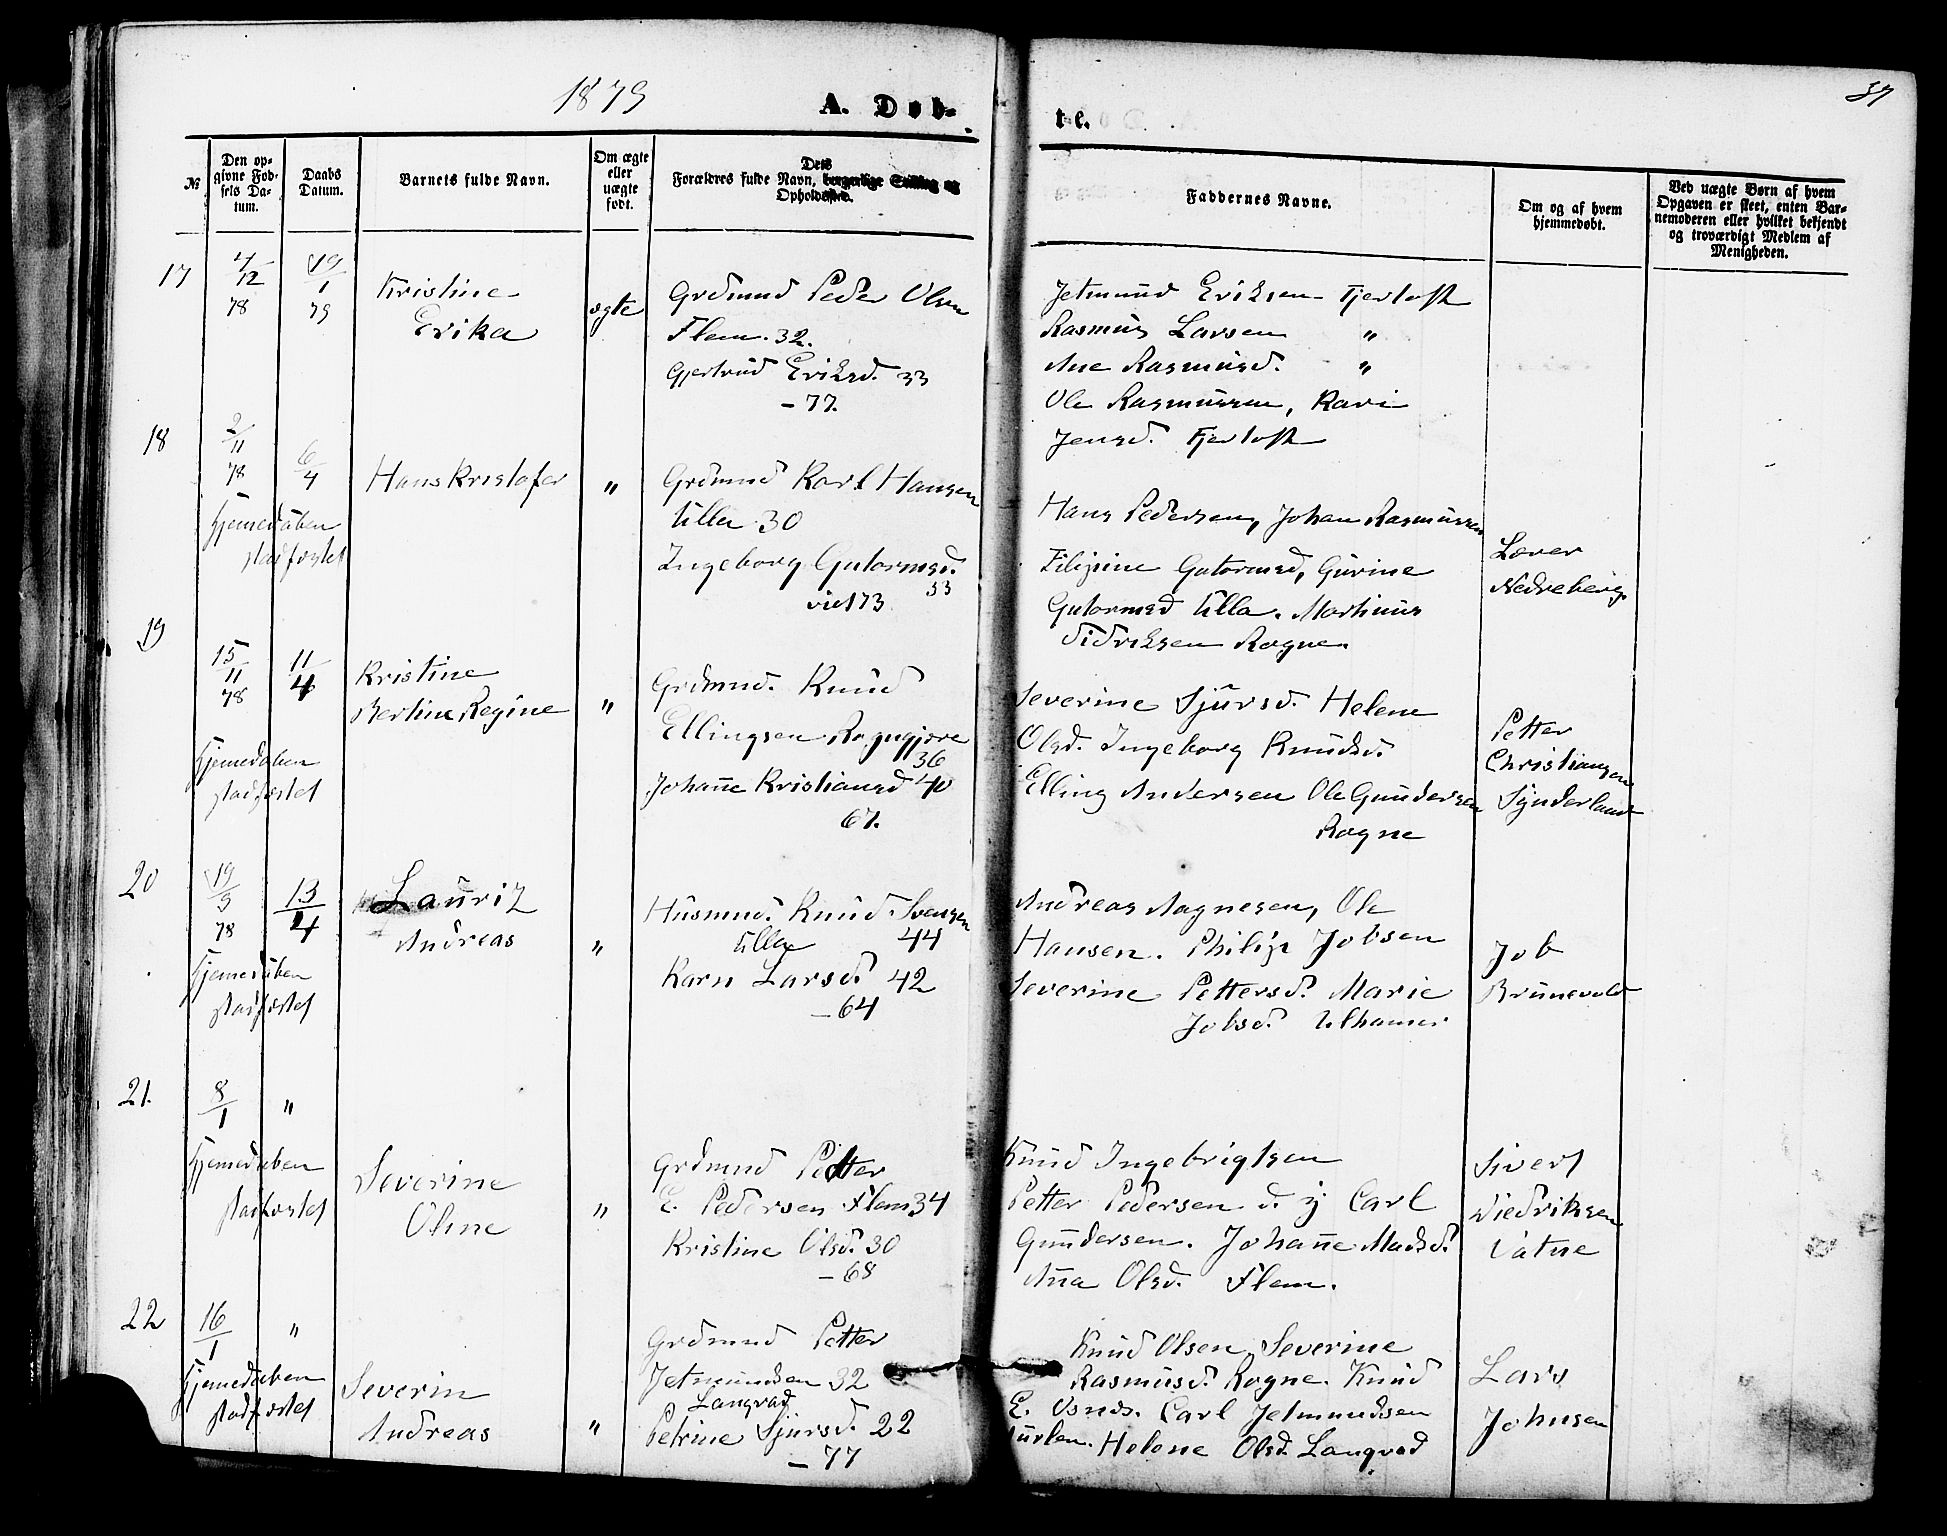 1879
A. Døb-
te.
37
№
Den op-
givne Fød-
sels Da-
tum.
Daabs
Datum.
Barnets fulde Navn.
Om ægte
eller
uægte
født.
Dets
Forældres fulde Navn, borgerlige Stilling og
Opholdssted.
Faddernes Navne.
Om og af hvem
hjemmedøbt.
Ved uægte Børn af hvem
Opgaven er skeet, enten Bar-
nemoderen eller hvilket bekjendt
og troværdigt Medlem af
Menigheden.
17
4/12
78
19/1
79
Kristine
Erika
ægte
Grdmnd Peder Olsen
Flem. 32.
Gjertrud Eriksd. 33
- 77.
Jetmund Eriksen Fjertoft
Rasmus Larsen "
Ane Rasmusd. "
Ole Rasmussen, Kari
Jensd. Fjertoft
18
2/11
78
6/4
Hjemedøben
stadfæstet
Hans Kristofer
"
Grdmnd Karl Hansen
Ulla 30
Ingeborg Gutormsd.
viet 73 33
Hans Pedersen, Johan Rasmussen
Filipine Gutormsd, Gurine
Gutormsd Ulla. Martinus
Didriksen Rogne.
Lærer
Nedreberg.
19
15/11
78
11/4
Hjemedøben
stadfæstet
Kristine
Bertine Regine
"
Grdmnd. Knud
Ellingsen Rogngjære
36
Johanne Kristiansd 40
67.
Severine Sjursd. Helene
Olsd. Ingeborg Knudsd.
Elling Andersen Ole Gundersen
Rogne
Petter
Christiansen
Synderland
20
19/3
78
13/4
Hjemedøben
stadfæstet
Lauritz
Andreas
"
Husmnd. Knud Svensen
Ulla 44
Karn Larsd. 42
- 64
Andreas Aagnesen, Ole
Hansen. Philip Jobsen
Severine Pettersd. Marie
Jobsd. Ulhamer
Job
Brunevold
21.
8/1
"
Hjemedøben
stadfæstet
Severine
Oline
"
Grdmnd Petter
E. Pedersen Flem 34
Kristine Olsd. 30
- 68
Knud Ingebrigtsen
Petter Pedersen d. y Carl
Gundersen. Johanne Madsd.
Anna Olsd. Flem.
Sivert
Diedriksen
Vatne
22
16/1
"
Hjemedøben
stadfæstet
Severin
Andreas
"
Grdmnd Petter
Jetmundsen 32
Langvad
Petrine Sjursd. 22
- 77
Knud Olsen, Severine
Rasmusd. Rogne. Knud
E. Osnes. Carl Jetmundsen
Helene Olsd. Langvad
Lars
Johnsen